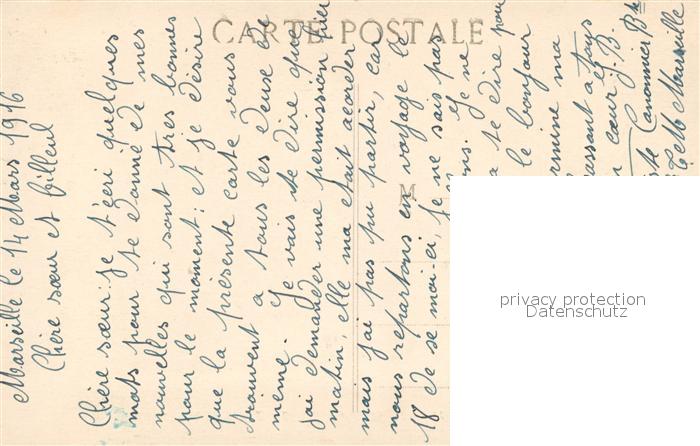 CARTE POSTALE
Marseille le 14 Mars 1916
Chère sœur et filleul
Chère sœur: je t'ecri quelques
mots pour te donné de mes
nouvelles qui sont très bonnes
pour le moment: et je désire
que la presente carte vous
trouvent a tous les deux de
meme. Je vais te dire que
jai demander une permission hier
matin, elle ma etait acorder
mais jai pas pu partir, car
nous repartons en voyage le
18 de se moi-ci, je ne sais pas
ons. Je ne
a te dire pour
le bonjour
rmine ma
ressant a tous
cœur J. B.
Canonnier Bte
Marseille
M
privacy protection
Datenschutz